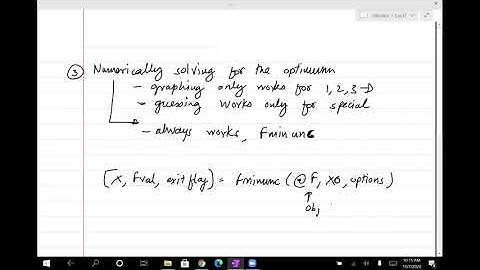 ③ Numerically solving for the optimum
- graphing only works for 1, 2, 3-D
- guessing works only for special
- always works, fminunc
[X, fval, exitflag] = fminunc (@ f, X0, options)
obj
10:15 AM